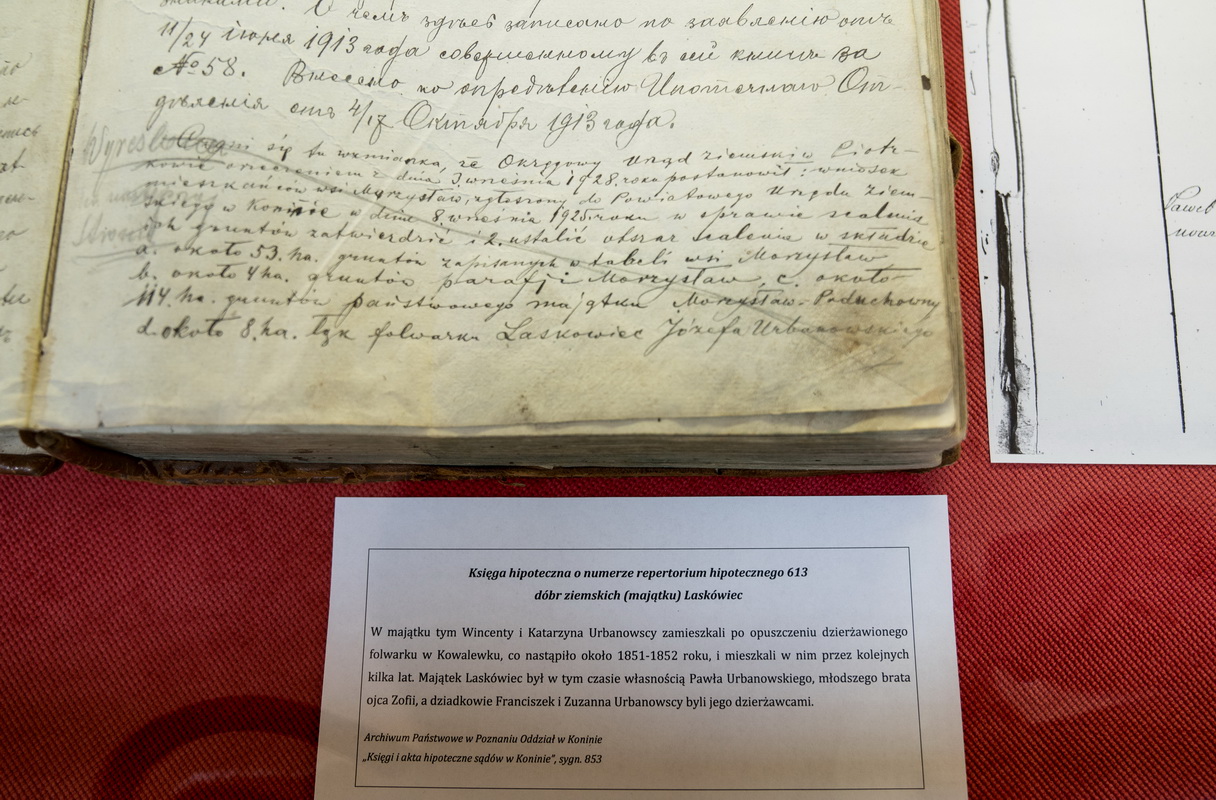 знаками. О чемъ здѣсь записано по заявленію отъ
11/24 іюня 1913 года совершенному въ сей книгѣ за
№ 58. Внесено по опредѣленію Ипотечнаго От-
дѣленія отъ 4/17 Октября 1913 года.
się tu wzmianka, że Okręgowy Urząd Ziemski w Piotr-
kowie orzeczeniem z dnia 3 września 1928 roku postanowił: wniosek
mieszkańców wsi Morzysław, zgłoszony do Powiatowego Urzędu Ziem-
skiego w Koninie w dniu 8 września 1925 roku w sprawie scalenia
ich gruntów zatwierdzić i 2. ustalić obszar scalenia w składzie
a. około 53. ha. gruntów zapisanych w tabeli wsi Morzysław
b. około 4 ha. gruntów parafji Morzysław, c. około
114. ha. gruntów państwowego majątku Morzysław-Poduchowny
d. około 8. ha. łąk folwarku Laskowiec Józefa Urbanowskiego
Księga hipoteczna o numerze repertorium hipotecznego 613
dóbr ziemskich (majątku) Laskówiec
W majątku tym Wincenty i Katarzyna Urbanowscy zamieszkali po opuszczeniu dzierżawionego
folwarku w Kowalewku, co nastąpiło około 1851-1852 roku, i mieszkali w nim przez kolejnych
kilka lat. Majątek Laskówiec był w tym czasie własnością Pawła Urbanowskiego, młodszego brata
ojca Zofii, a dziadkowie Franciszek i Zuzanna Urbanowscy byli jego dzierżawcami.
Archiwum Państwowe w Poznaniu Oddział w Koninie
„Księgi i akta hipoteczne sądów w Koninie", sygn. 853